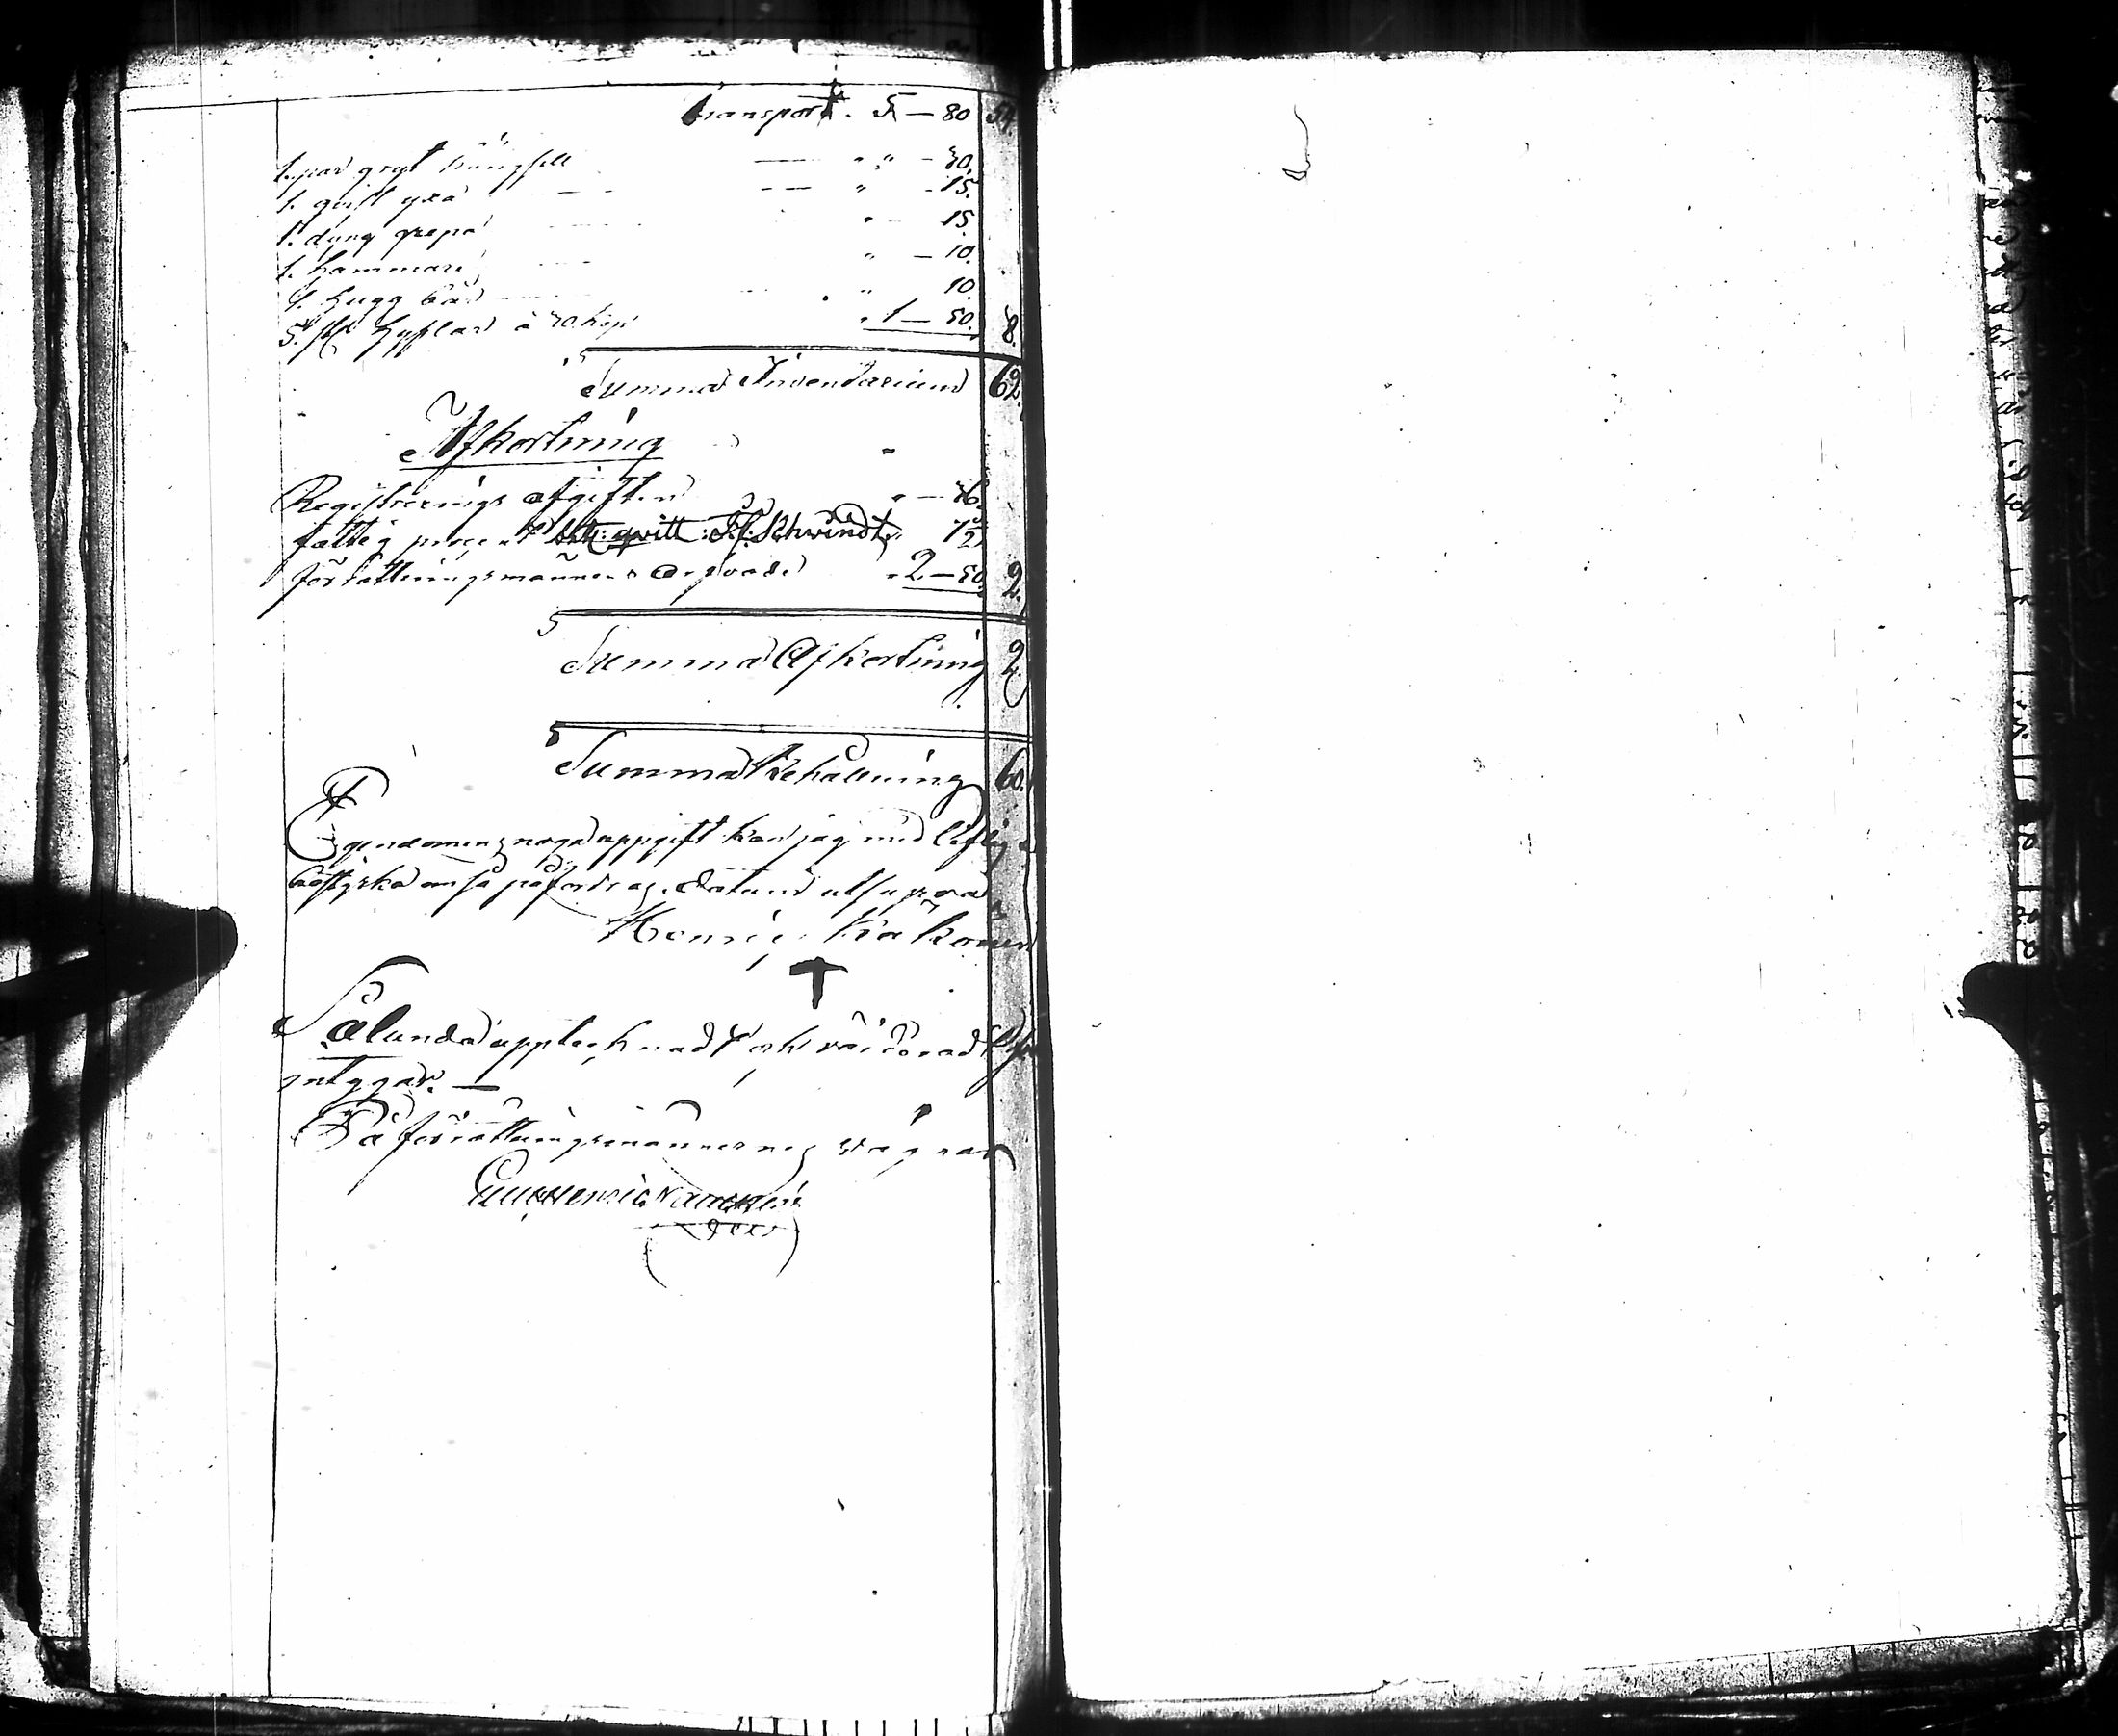 Transport. 5 — 80 54.
1. par gryt hängsell — " " — 30.
1. qvist yxa — — — " - 15.
1. dung grepa " 15.
1. hammare " — 10.
1. hugg " 10.
5. st. hyflar à 30. kop " 1 — 50. 8.
Summa Inventarium 62.
Afkortning
Registrerings afgiften " —
fattig procent qvitt: Schwindt "
förrättningsmännens arfvode " 2 — 50. 2.
Summa Afkortning 2.
Summa Behållning 60.
Egendomens noga uppgift kan jag med liflig ed
bestyrka om så påfordras. Datum utsupra
Henric
Sålunda upptecknadt och värderadt
intygar. —
På förrättningsmännernes vägnar